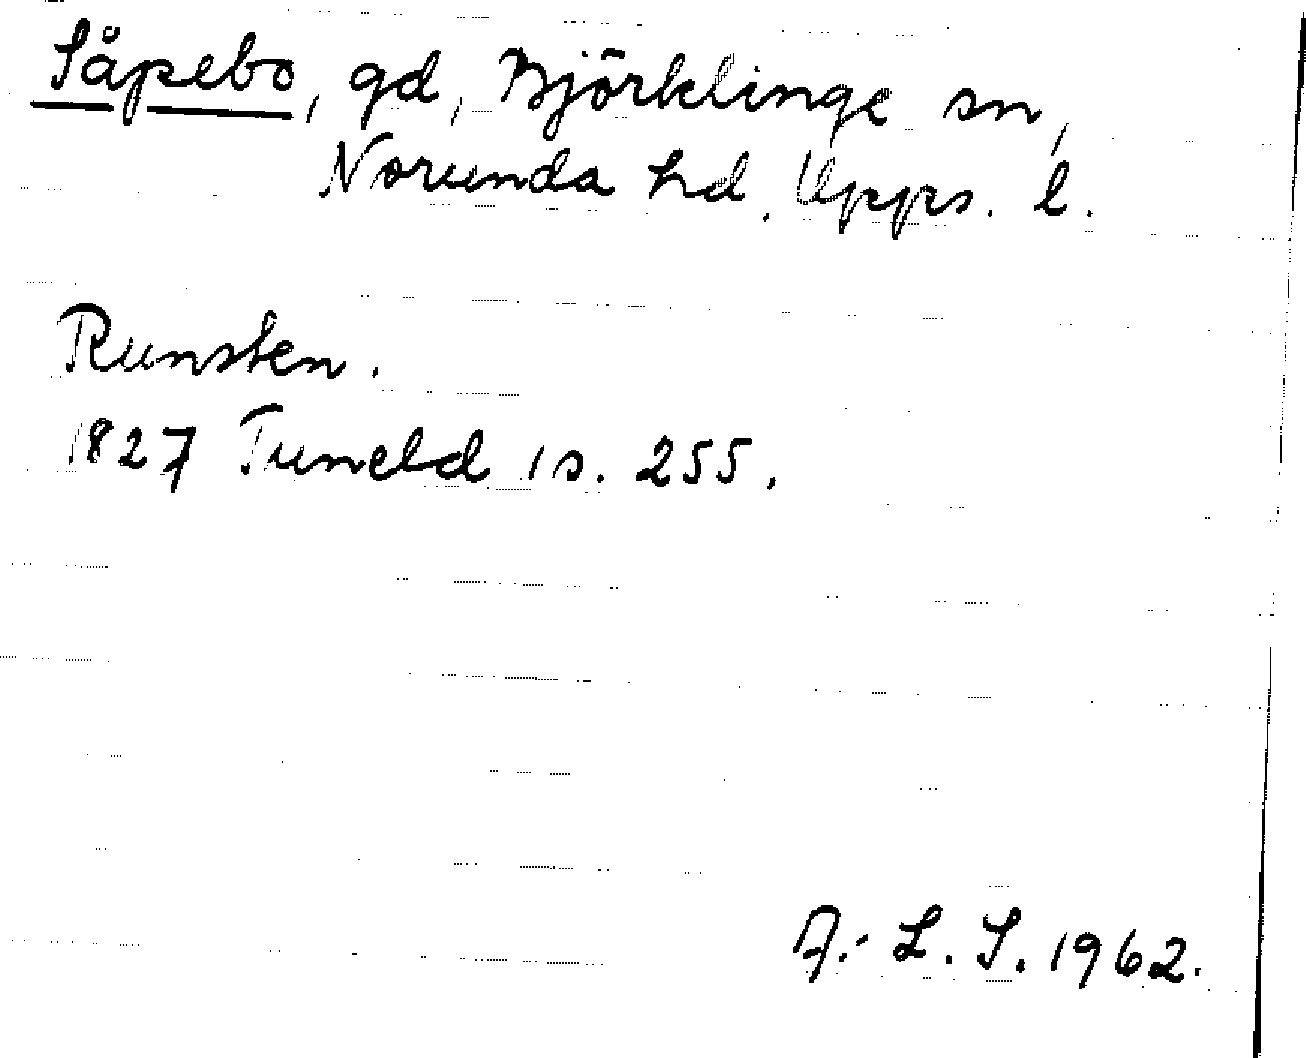 Såpebo, gd, Björklinge sn,
Norunda hd. Upps. l.
Runsten.
1827 Tuneld 1 s. 255.
A.-L. S. 1962.